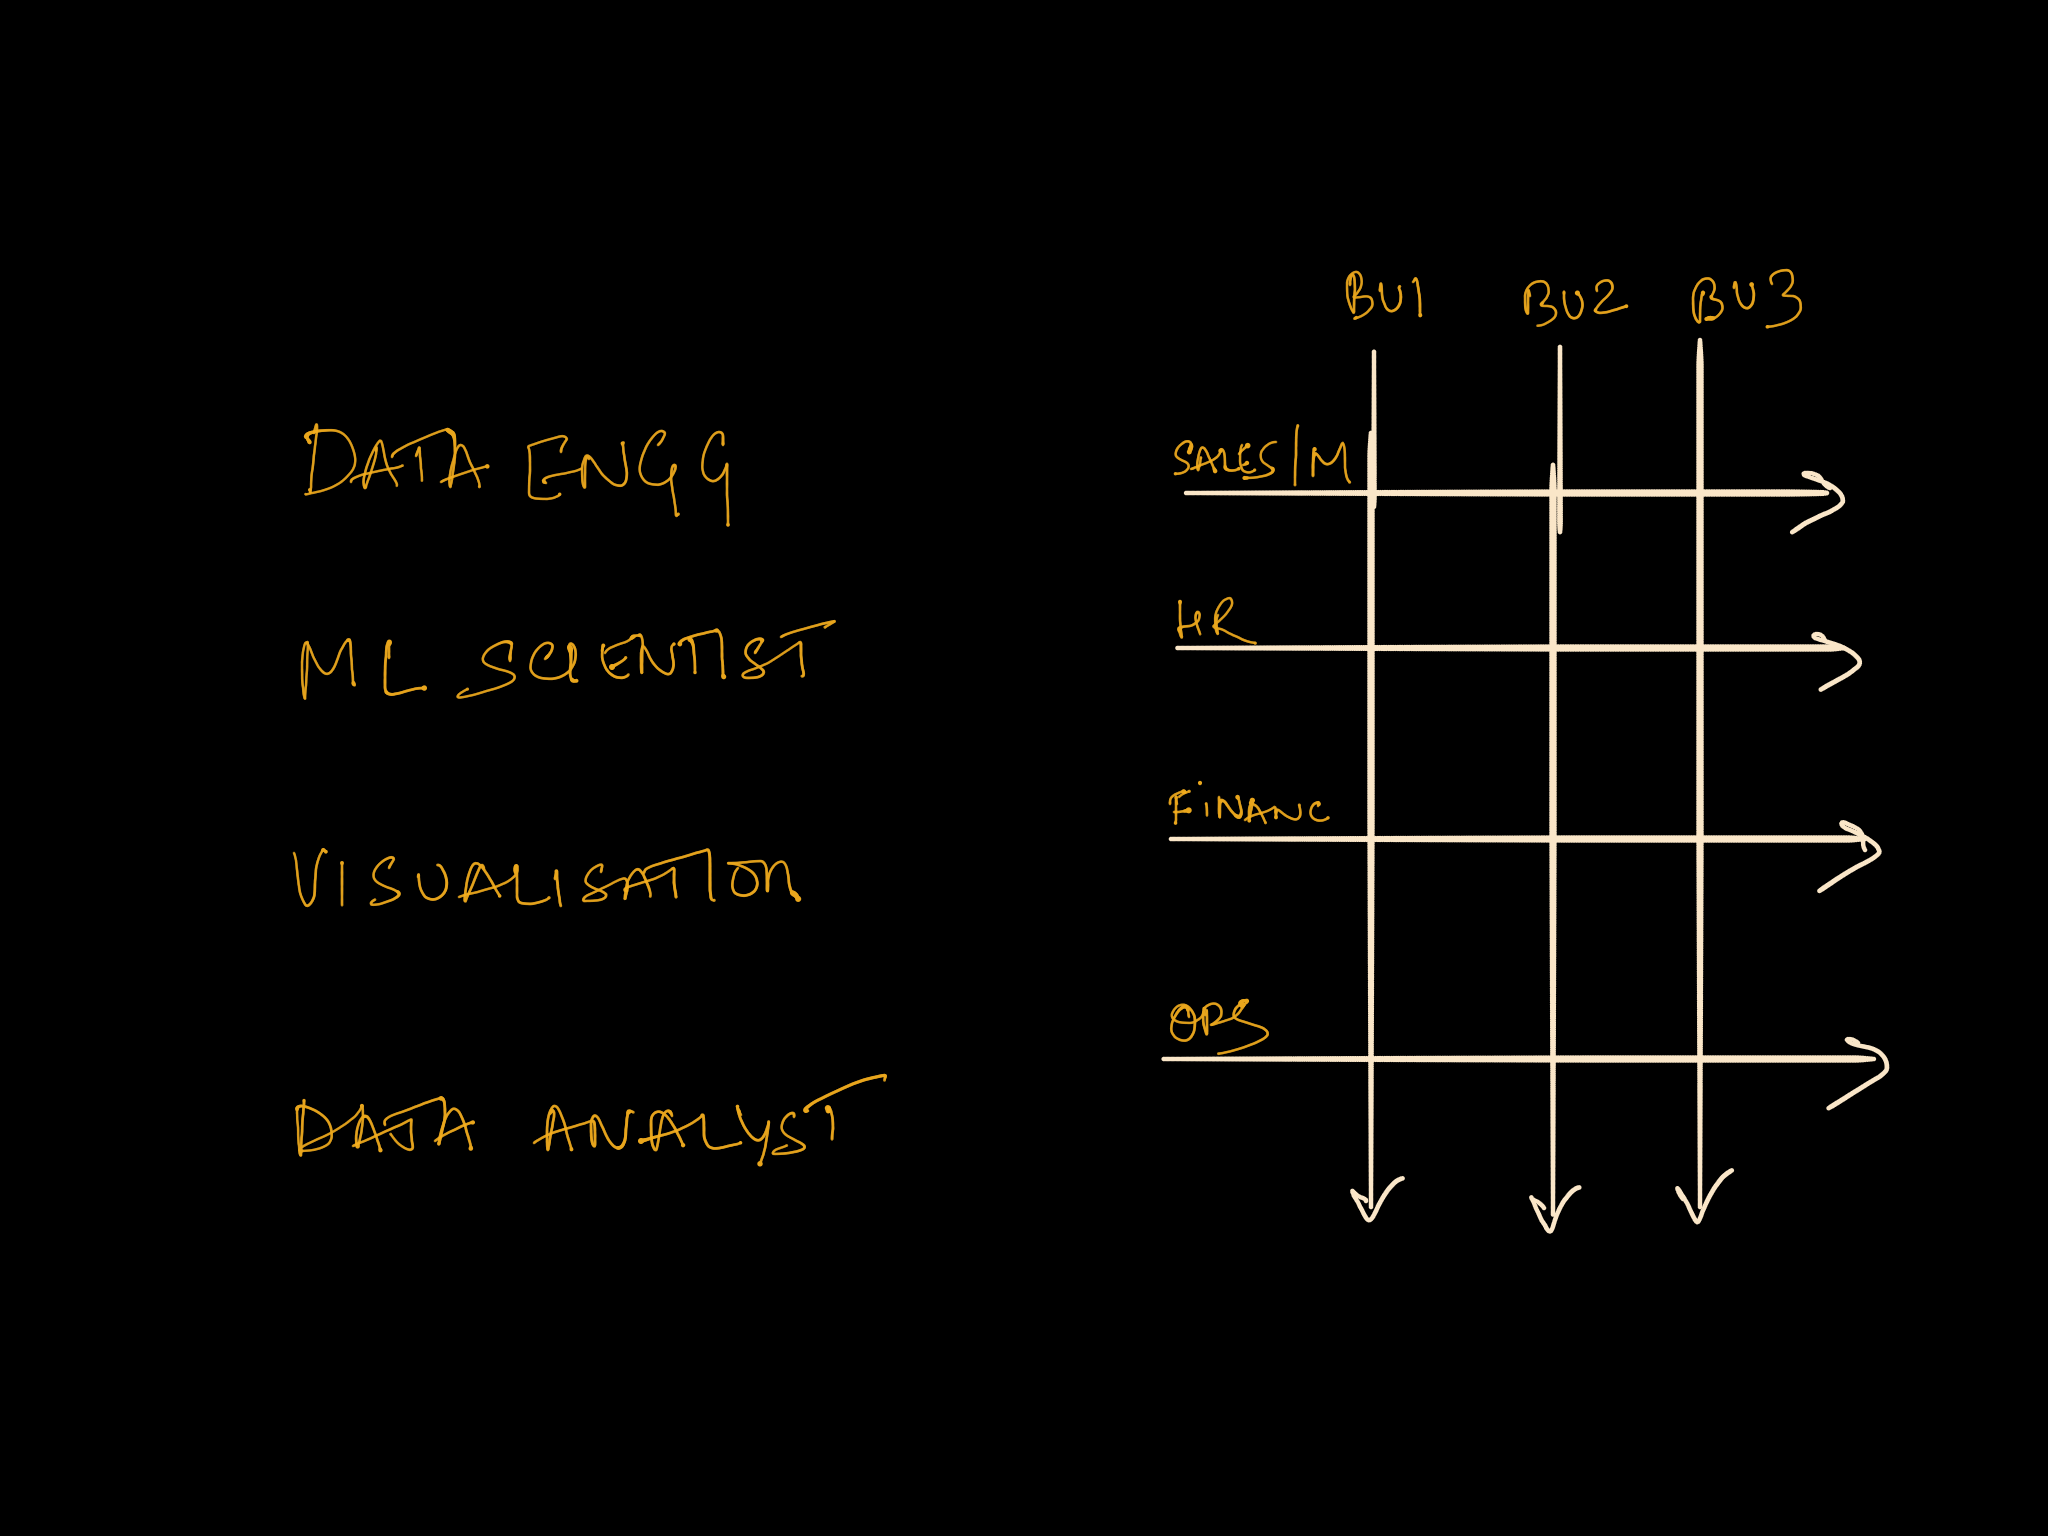 DATA ENGG
ML SCIENTIST
VISUALISATION
DATA ANALYST
BU1 BU2 BU3
SALES/M
HR
FiNANC
OPS